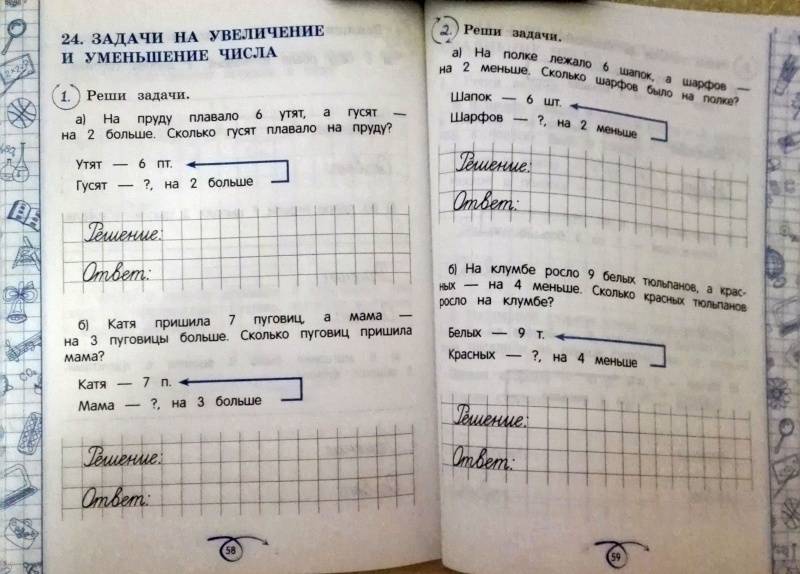 24. ЗАДАЧИ НА УВЕЛИЧЕНИЕ
И УМЕНЬШЕНИЕ ЧИСЛА
1. Реши задачи.
а) На пруду плавало 6 утят, а гусят —
на 2 больше. Сколько гусят плавало на пруду?
Утят — 6 пт.
Гусят — ?, на 2 больше
Решение:
Ответ:
б) Катя пришила 7 пуговиц, а мама —
на 3 пуговицы больше. Сколько пуговиц пришила
мама?
Катя — 7 п.
Мама — ?, на 3 больше
Решение:
Ответ:
58
2. Реши задачи.
а) На полке лежало 6 шапок, а шарфов —
на 2 меньше. Сколько шарфов было на полке?
Шапок — 6 шт.
Шарфов — ?, на 2 меньше
Решение:
Ответ:
б) На клумбе росло 9 белых тюльпанов, а крас-
ных — на 4 меньше. Сколько красных тюльпанов
росло на клумбе?
Белых — 9 т.
Красных — ?, на 4 меньше
Решение:
Ответ:
59